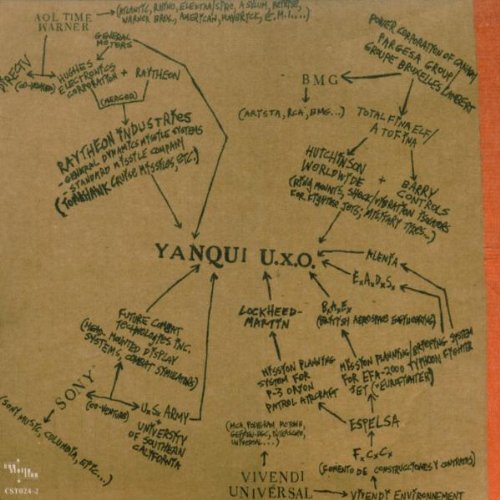 AOL TIME
WARNER
(ATLANTIC, RHINO, ELEKTRA/SIRE, ASYLUM, REPRISE,
WARNER BROS., AMERICAN, MAVERICK, E.M.I....)
GENERAL
MOTORS
DIRECTV
(CO-OWNED)
HUGHES
ELECTRONICS
CORPORATION
+ RAYTHEON
(MERGED)
RAYTHEON INDUSTRIES
-GENERAL DYNAMICS MISSILE SYSTEMS
STANDARD MISSILE COMPANY
(TOMAHAWK CRUISE MISSILES, ETC.)
POWER CORPORATION OF CANADA/
PARGESA GROUP/
GROUPE BRUXELLES LAMBERT
BMG
(ARISTA, RCA, BMG...)
TOTAL FINA ELF/
ATOFINA
HUTCHINSON
WORLDWIDE
+ BARRY
CONTROLS
FOR FIGHTER JETS; MILITARY TIRES...)
YANQUI U.X.O.
ALENIA
E.A.D.S.
LOCKHEED-
MARTIN
B.A.E.
(BRITISH AEROSPACE ENGINEERING)
FUTURE COMBAT
TECHNOLOGIES INC.
(HEAD-MOUNTED DISPLAY
SYSTEMS, COMBAT SIMULATORS)
MISSION PLANNING
SYSTEM FOR
P-3 ORION
PATROL AIRCRAFT
MISSION PLANNING
FOR EFA-2000
JET ("EUROFIGHTER")
TYPHOON FIGHTER
SONY
(CO-VENTURE)
(SONY MUSIC, COLUMBIA, EPIC...)
U.S. ARMY
+
UNIVERSITY
OF SOUTHERN
CALIFORNIA
(MCA, POLYGRAM, MOTOWN,
GEFFEN-DGC, INTERSCOPE,
UNIVERSAL...)
ESPELSA
F.C.C.
(FOMENTO DE CONSTRUCCIONES Y CONTRATAS)
VIVENDI
UNIVERSAL
VIVENDI ENVIRONNEMENT
CST024-2